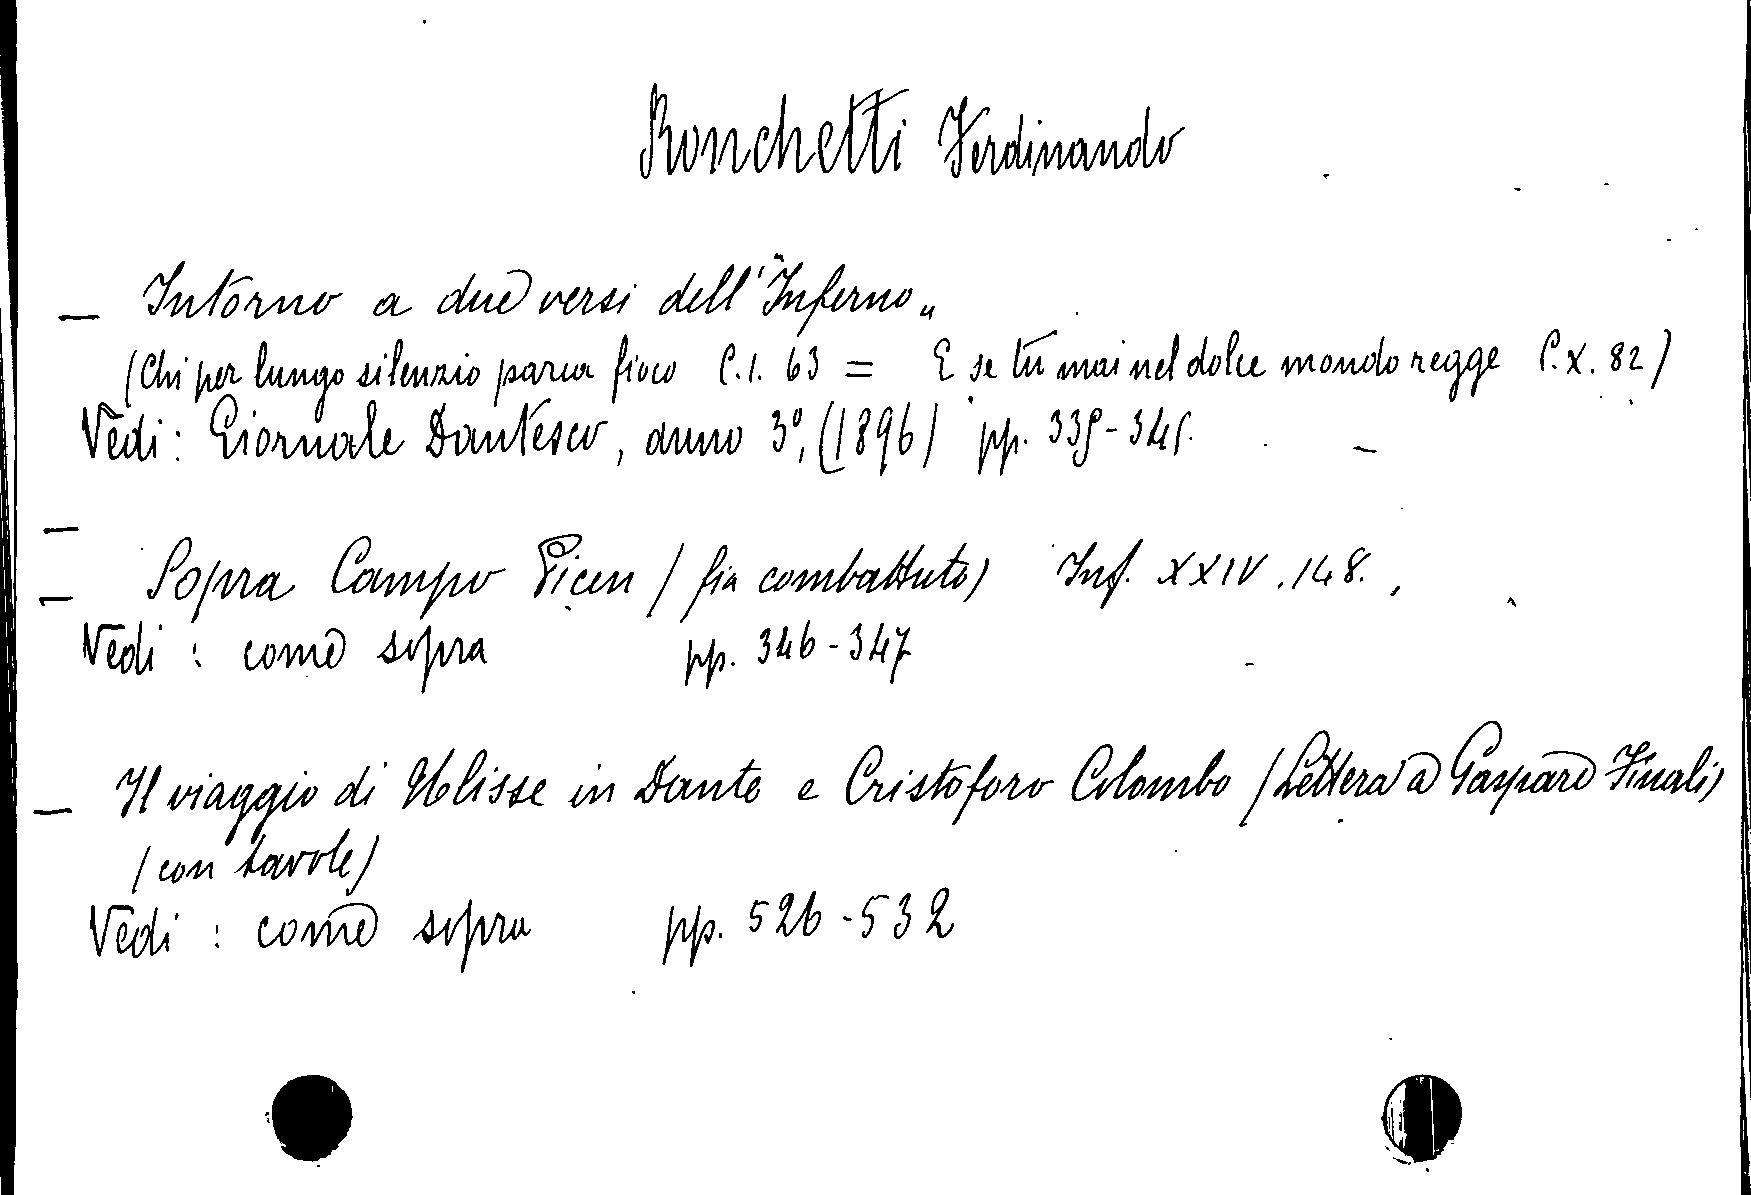 Ronchetti Ferdinando
— Intorno a due versi dell'"Inferno„
(Chi per lungo silenzio parea fioco C. I. 63 = E se tu mai nel dolce mondo regge C. X. 82)
Vedi: Giornale Dantesco, anno 3°, (1896) pp. 339-345.
—
— Sopra Campo Picen (fia combattuto) Inf. XXIV. 148.
Vedi : come sopra pp. 346-347
— Il viaggio di Ulisse in Dante e Cristoforo Colombo (Lettera a Gaspare Finali)
(con tavole)
Vedi : come sopra pp. 526-532